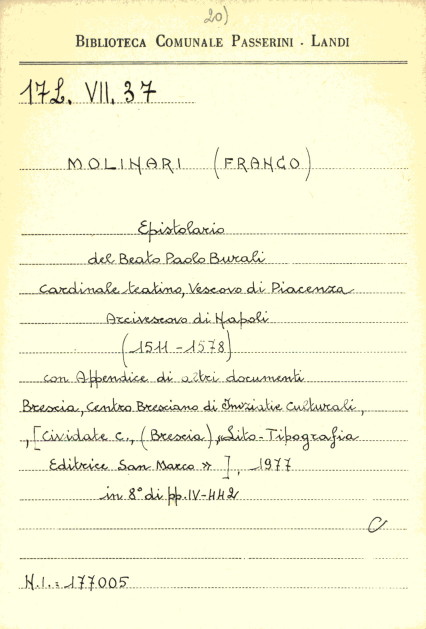 20)
BIBLIOTECA COMUNALE PASSERINI - LANDI
17L. VII. 37
MOLINARI (FRANCO)
Epistolario
del Beato Paolo Burali
Cardinale teatino, Vescovo di Piacenza
Arcivescovo di Napoli
(1511-1578)
con Appendice di altri documenti
Brescia, Centro Bresciano di Iniziatie Culturali,
, [Cividate C., (Brescia), «Lito-Tipografia
Editrice San Marco» ], 1977
in 8° di pp. IV-442
C
N.I.: 177005